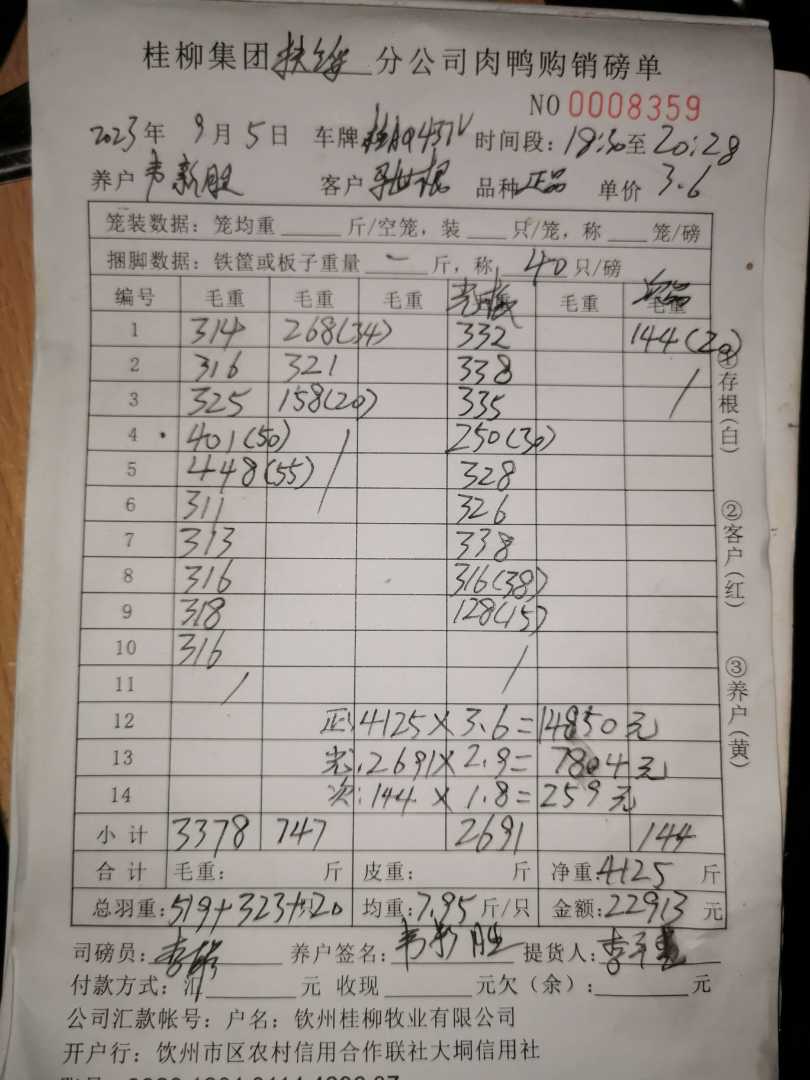 桂柳集团扶绥分公司肉鸭购销磅单
NO 0008359
2023年 9月 5日 车牌 时间段：18:30至20:28
养户 韦新胜 客户 品种 正品 单价 3.6
笼装数据：笼均重 斤/空笼，装 只/笼，称 笼/磅
捆脚数据：铁筐或板子重量 一 斤，称 40 只/磅
编号 毛重 毛重 毛重 毛重 毛重
1 314 268(34) 332 144(20)
2 316 321 338 /
3 325 158(20) 335
4 401(50) / 250(30)
5 448(55) 328
6 311 326
7 313 338
8 316 316(38)
9 318 128(15)
10 316
11 / /
12 正:4125×3.6=14850元
13 光:2691×2.9=7804元
14 次:144×1.8=259元
小计 3378 747 2691 144
合计 毛重： 斤 皮重： 斤 净重：4125 斤
总羽重：519+323+20 均重：7.95斤/只 金额：22913元
司磅员： 养户签名：韦新胜 提货人：
付款方式：汇 元 收现 元欠（余）： 元
公司汇款帐号：户名：钦州桂柳牧业有限公司
开户行：钦州市区农村信用合作联社大垌信用社
①存根(白)
②客户(红)
③养户(黄)